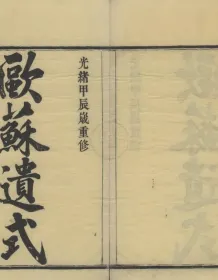 光緒甲辰歲重修
歐蘇遺式